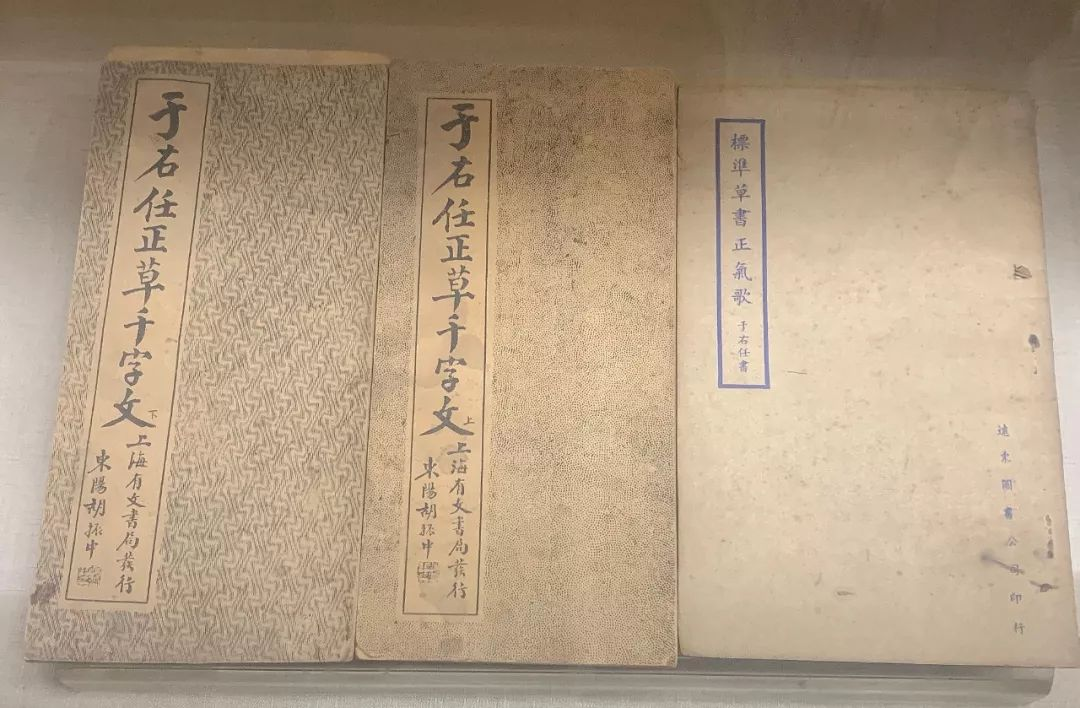 于右任正草千字文 下
上海有文書局發行
東陽胡振中
于右任正草千字文 上
上海有文書局發行
東陽胡振中
標準草書正氣歌 于右任書
遠東圖書公司印行